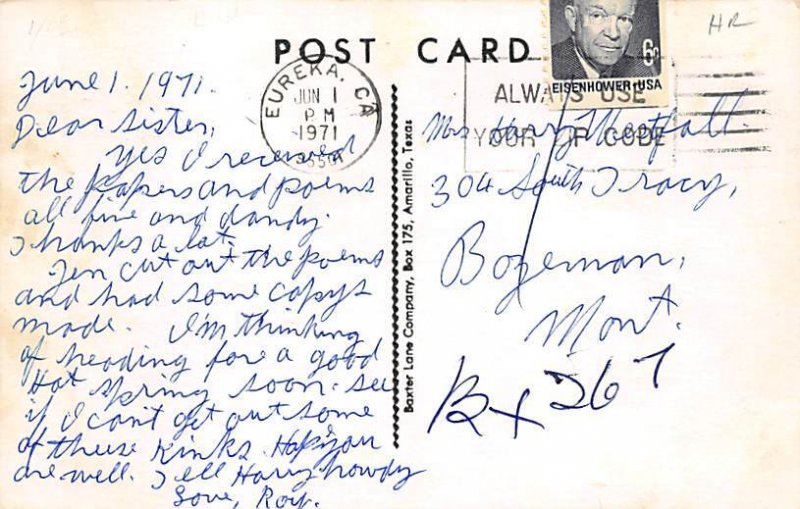 HR
POST CARD
EUREKA, CA
JUN 1
PM
1971
ALWAYS USE
YOUR ZIP CODE
6¢
EISENHOWER·USA
June 1. 1971.
Dear Sister,
Yes I received
the papers and poems
all fine and dandy.
Thanks a lot.
Jen cut out the poems
and had some copys
made. I'm thinking
of heading for a good
Hot Spring soon. see
if I can't get out some
of these Kinks. Hope you
are well. Tell Harry howdy
Love, Roy.
Baxter Lane Company, Box 175, Amarillo, Texas
Mrs Harry Westfall.
304 South Tracy,
Bozeman,
Mont.
Bx 267